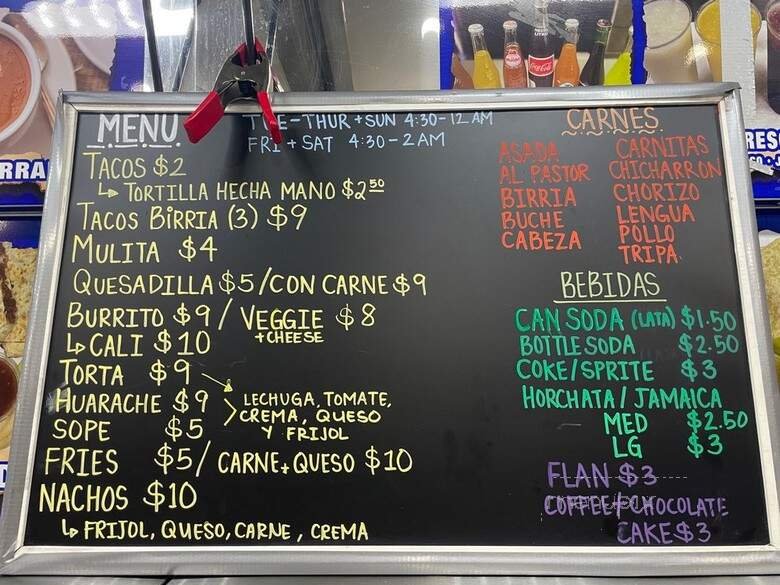 MENU
TUE-THUR + SUN 4:30-12 AM
FRI + SAT 4:30-2 AM
TACOS $2
↳ TORTILLA HECHA MANO $2.50
TACOS BIRRIA (3) $9
MULITA $4
QUESADILLA $5/CON CARNE $9
BURRITO $9/ VEGGIE $8
+CHEESE
↳ CALI $10
TORTA $9
HUARACHE $9
LECHUGA, TOMATE,
CREMA, QUESO
Y FRIJOL
SOPE $5
FRIES $5/ CARNE+QUESO $10
NACHOS $10
↳ FRIJOL, QUESO, CARNE, CREMA
CARNES
ASADA
AL PASTOR
BIRRIA
BUCHE
CABEZA
CARNITAS
CHICHARRON
CHORIZO
LENGUA
POLLO
TRIPA
BEBIDAS
CAN SODA (LATA) $1.50
BOTTLE SODA $2.50
COKE/SPRITE $3
HORCHATA / JAMAICA
MED $2.50
LG $3
FLAN $3
COFFEE/CHOCOLATE
CAKE $3
Coca-Cola
RRA
RES